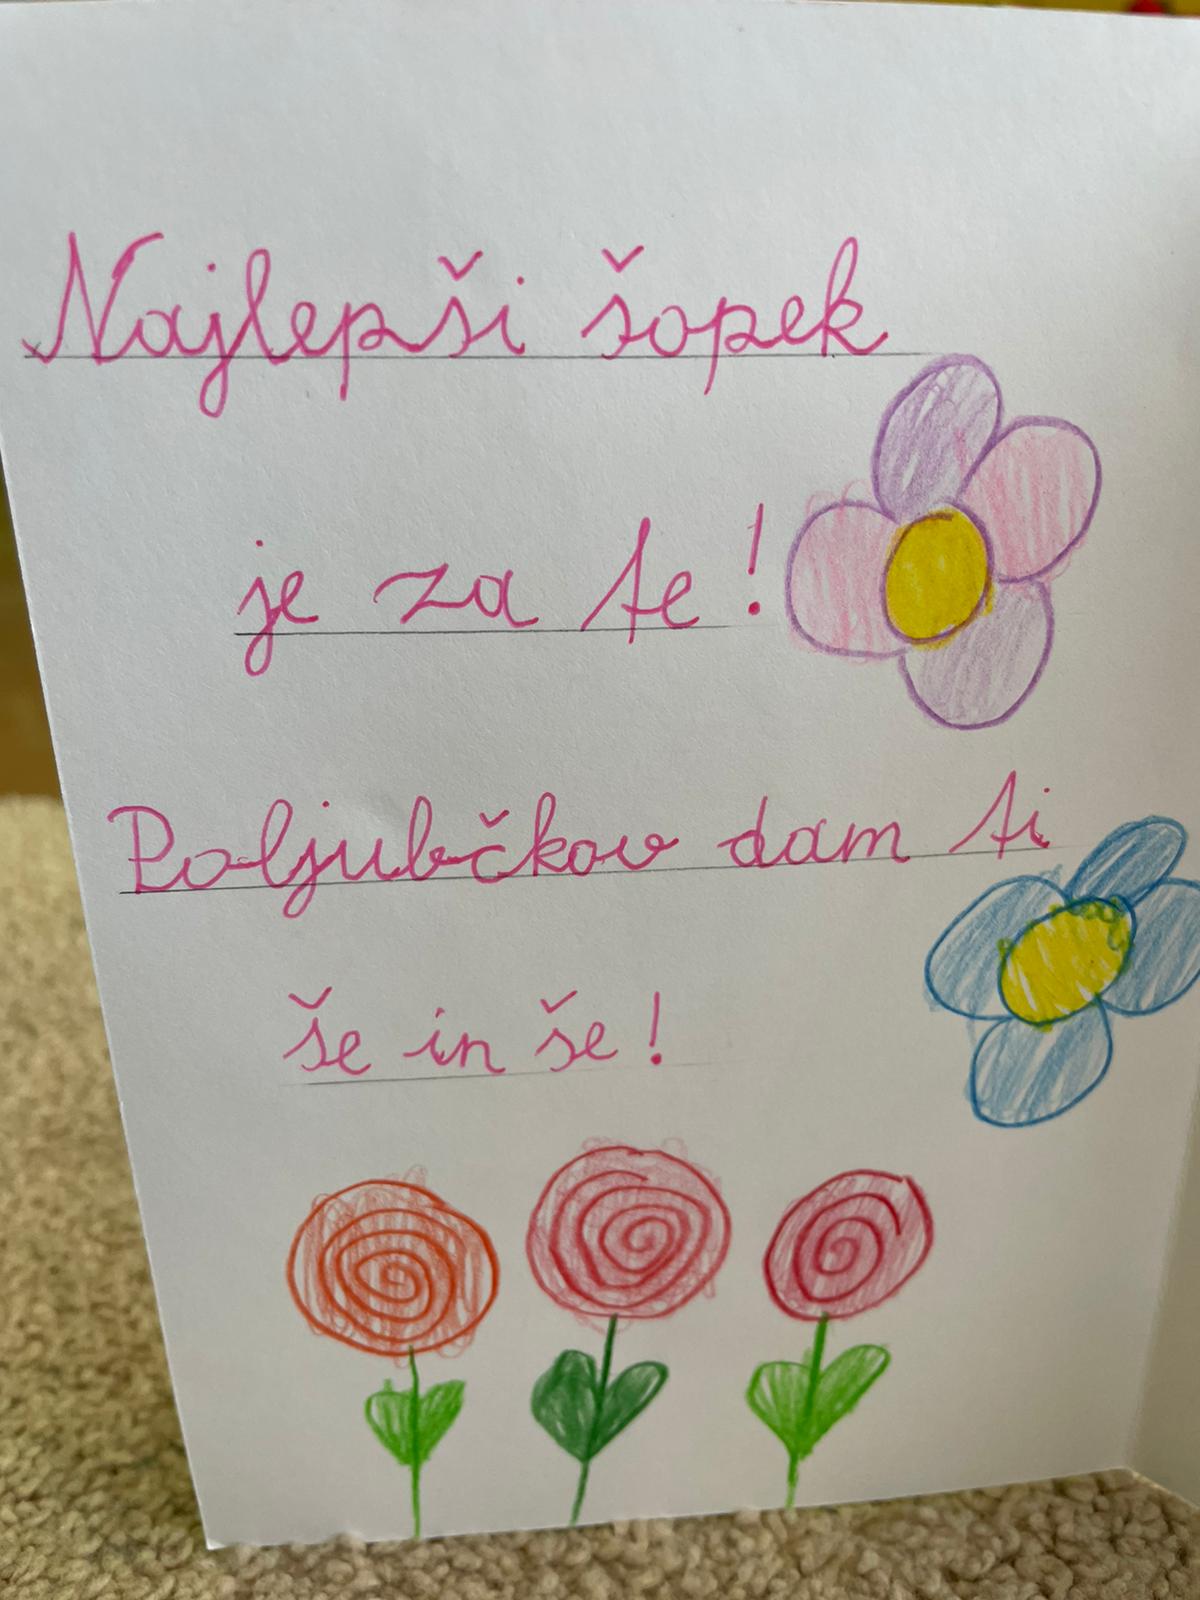 Najlepši šopek
je za te!
Poljubčkov dam ti
še in še!